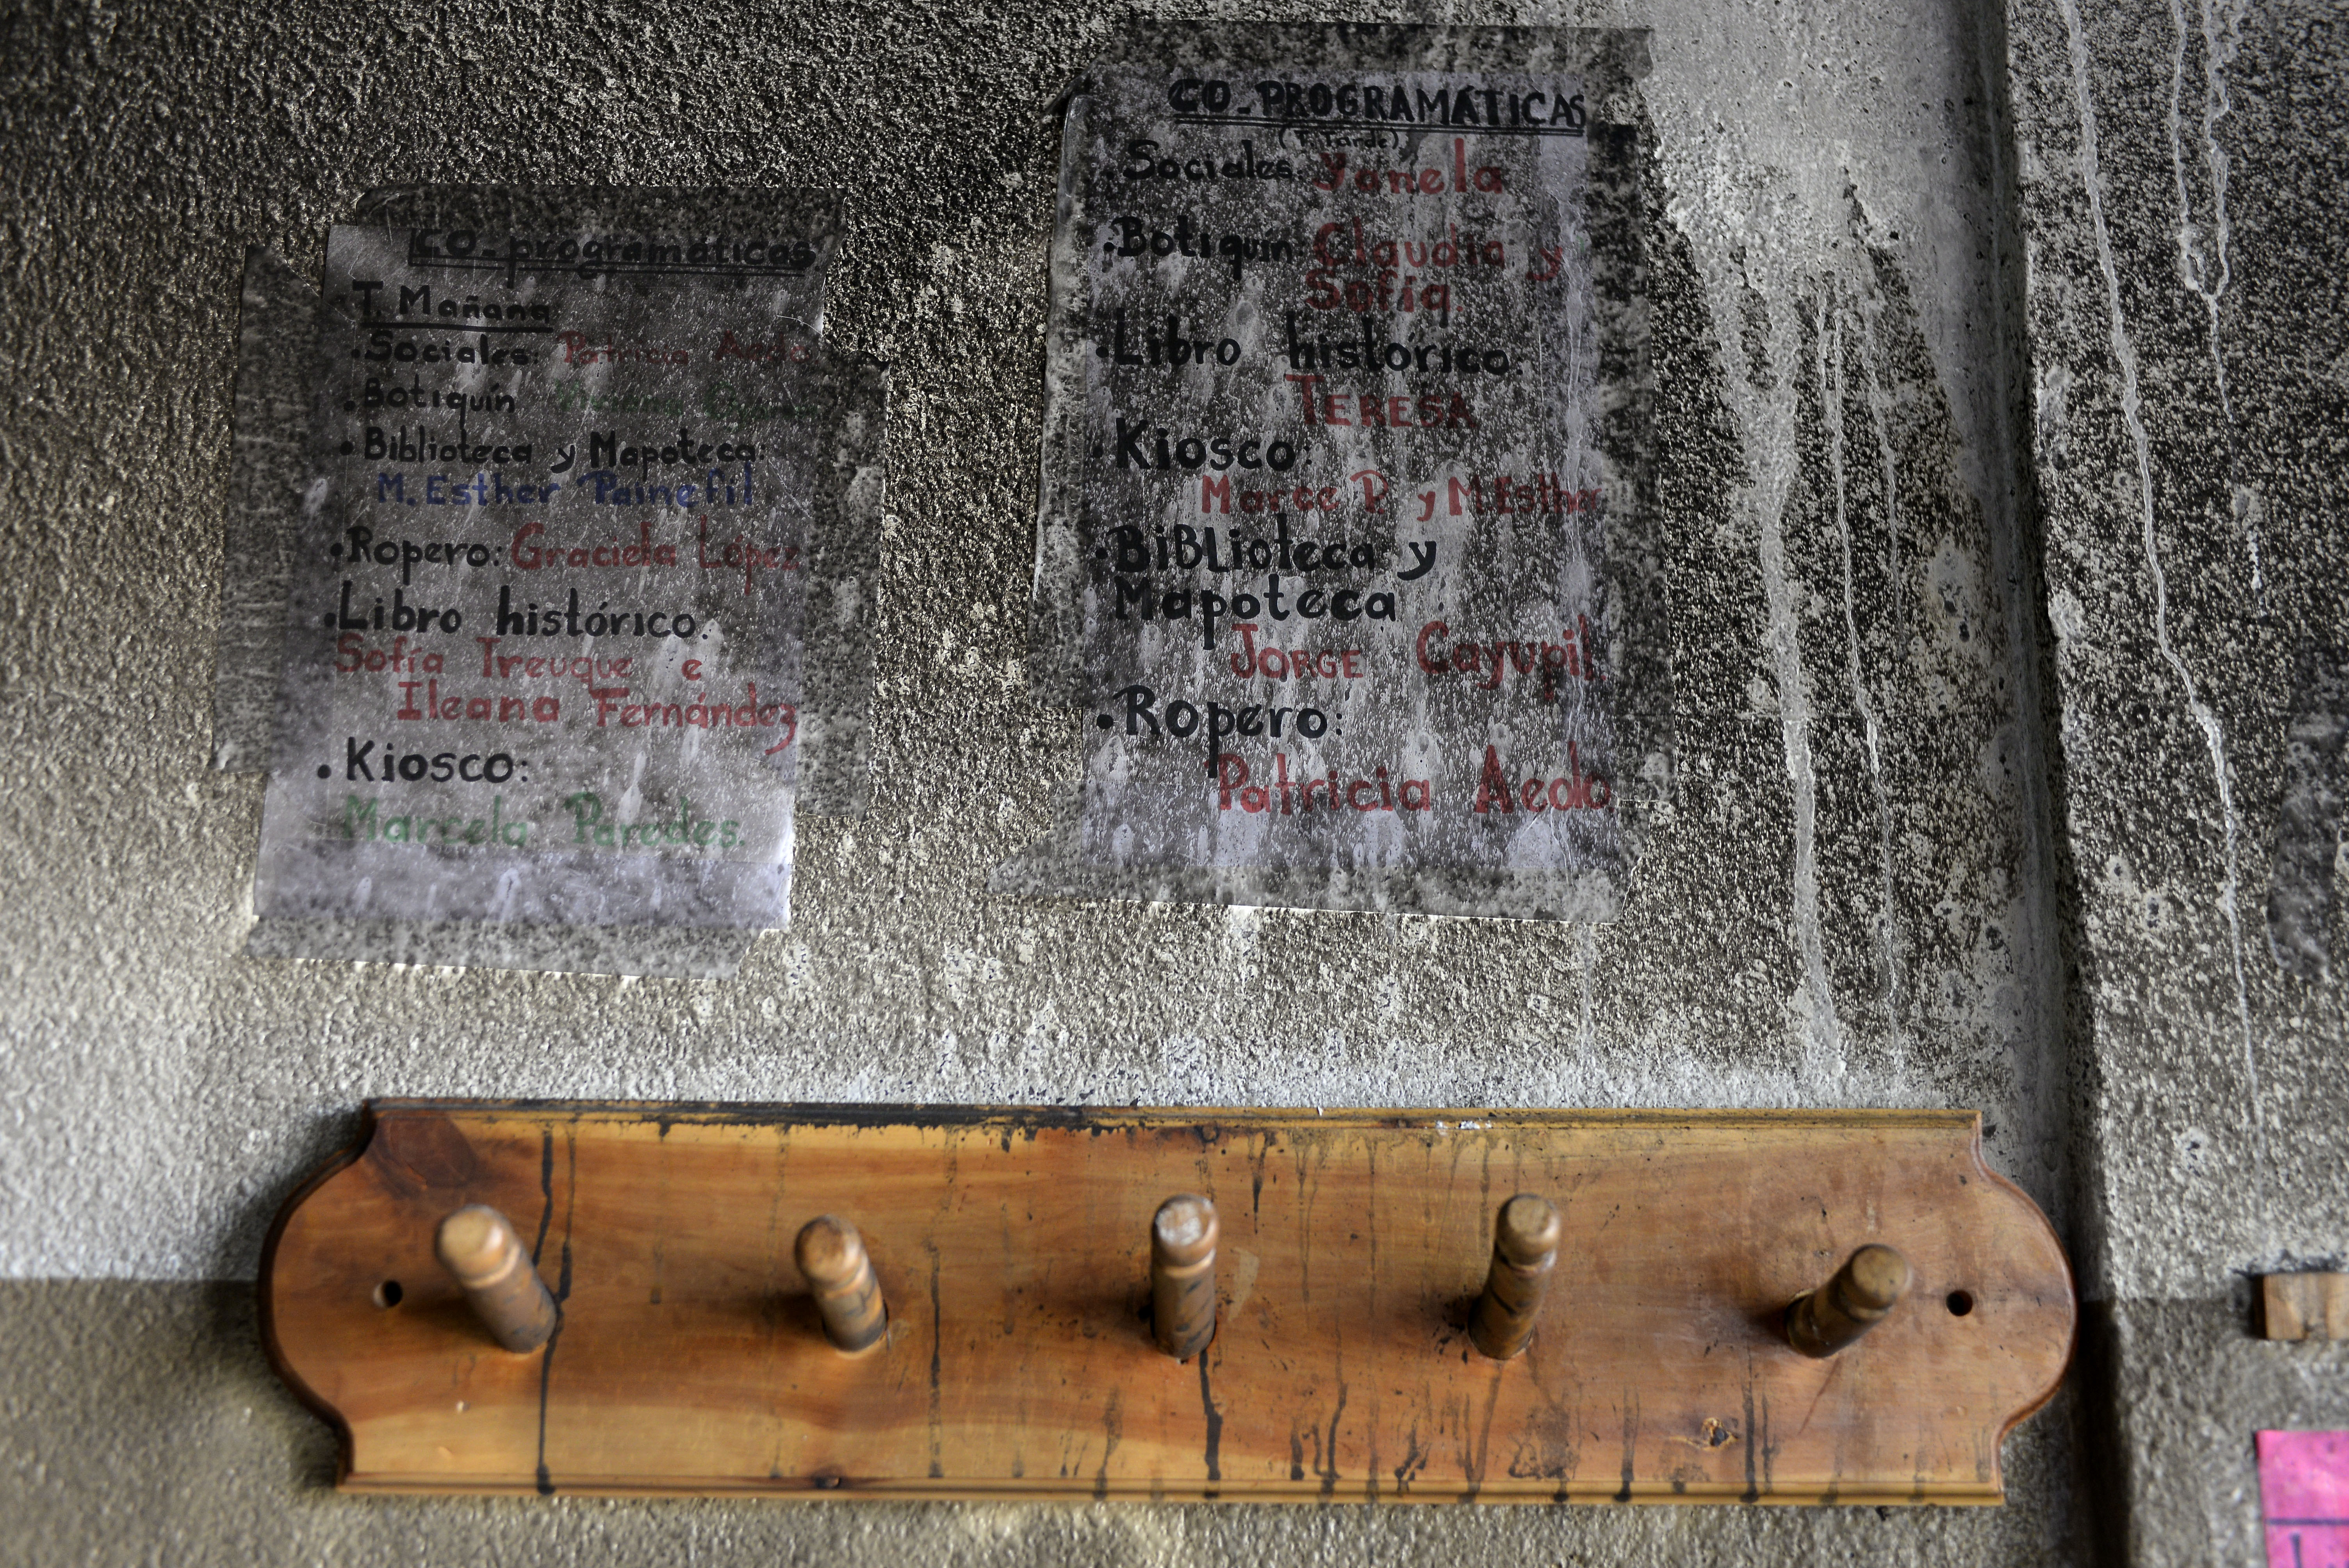 CO-programáticas
T. Mañana
• Sociales: Patricia Aedo
• Botiquín
• Biblioteca y Mapoteca:
M. Esther Painefil
• Ropero: Graciela López
• Libro histórico:
Sofía Treuque e
Ileana Fernández
• Kiosco:
Marcela Paredes.
CO-PROGRAMÁTICAS
(T. Tarde)
• Sociales: Yanela
• Botiquín: Claudia y
Sofía.
• Libro histórico:
TERESA
• Kiosco:
Marce P. y M. Esther
• BiBLioteca y
Mapoteca
JORGE Cayupil
• Ropero:
Patricia Aedo